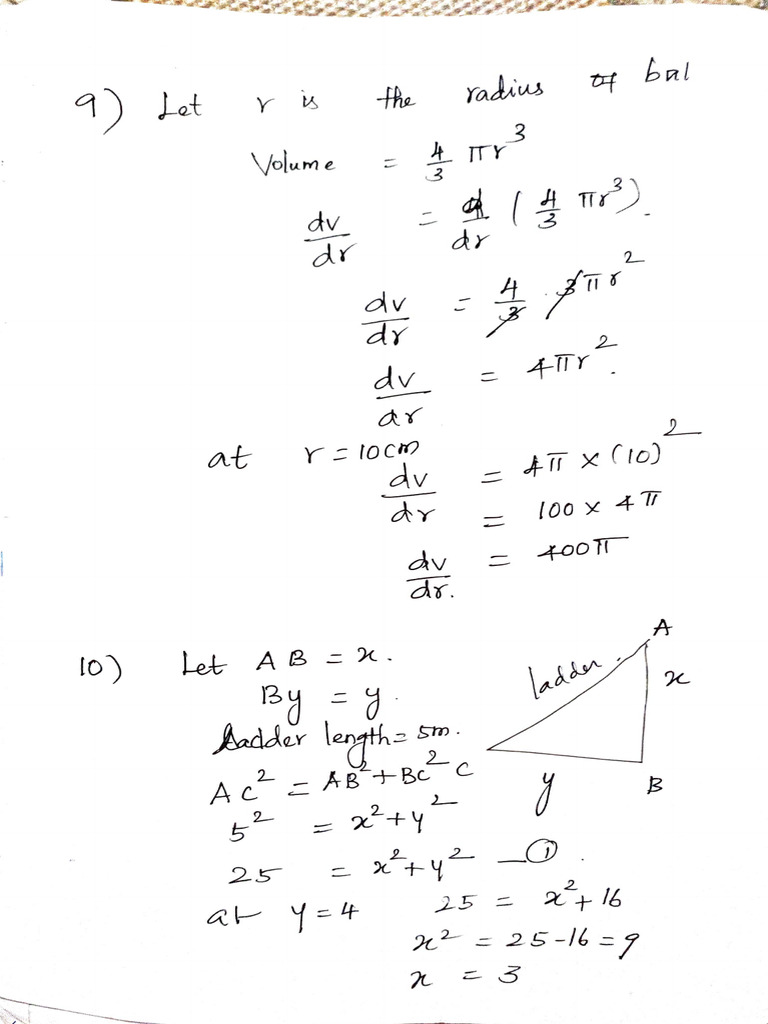 9) Let r is the radius of bal
Volume = 4/3 πr³
dv/dr = d/dr (4/3 πr³).
dv/dr = 4/3 . 3πr²
dv/dr = 4πr².
at r = 10cm
dv/dr = 4π × (10)²
= 100 × 4π
dv/dr. = 400π
10) Let AB = x.
By = y.
Ladder length = 5m.
AC² = AB² + BC²
5² = x² + y²
25 = x² + y² — ①.
at y = 4 25 = x² + 16
x² = 25 - 16 = 9
x = 3
A
ladder
x
C
y
B